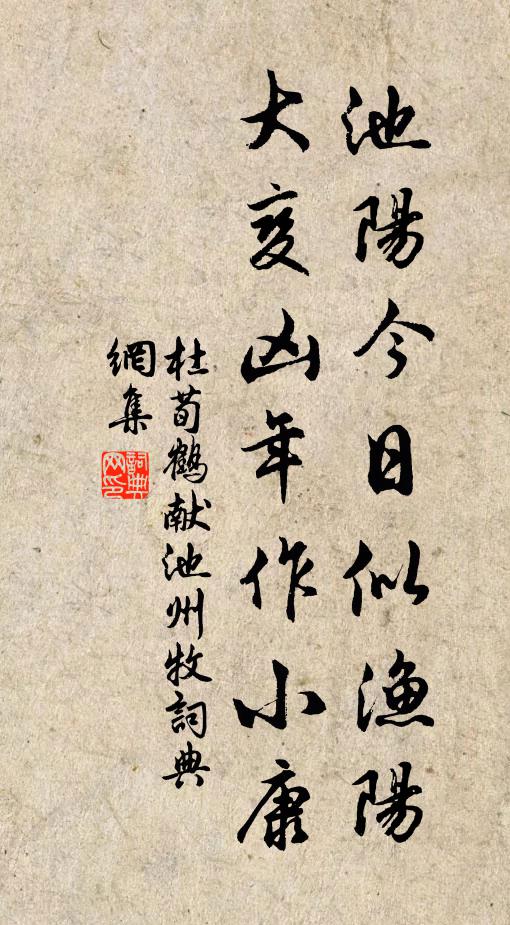 池陽今日似漁陽
大変凶年作小康
杜荀鶴献池州牧詞典
網集
詞典網印